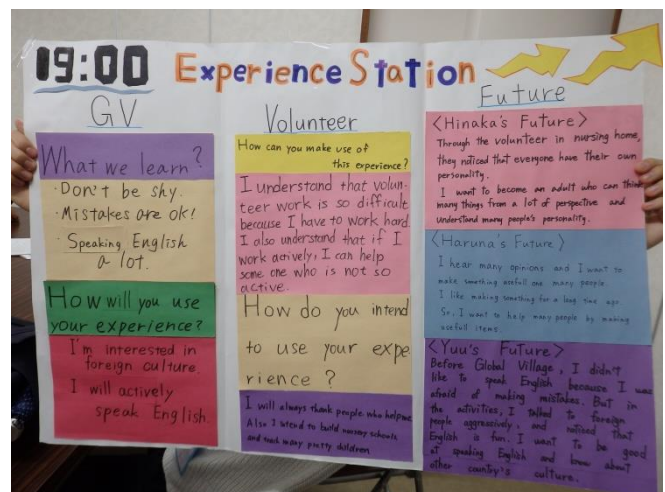 19:00 Experience Station
GV
What we learn?
・Don't be shy.
・Mistakes are ok!
・Speaking English
a lot.
How will you use
your experience?
I'm interested in
foreign culture.
I will actively
speak English.
Volunteer
How can you make use of
this experience?
I understand that volun-
teer work is so difficult
because I have to work hard.
I also understand that if I
work actively, I can help
some one who is not so
active.
How do you intend
to use your expe
rience?
I will always thank people who help me
Also I intend to build nursery schools
and teach many pretty children
Future
<Hinaka's Future>
Through the volunteer in nursing home,
they noticed that everyone have their own
personality.
I want to become an adult who can think
many things from a lot of perspective and
understand many people's personality.
<Haruna's Future>
I hear many opinions and I want to
make something usefull one many people.
I like making something for a long time ago.
So, I want to help many people by making
usefull items.
<Yuu's Future>
Before Global Village, I didn't
like to speak English because I was
afraid of making mistakes. But in
the activities, I talked to foreign
people aggressively, and noticed that
English is fun. I want to be good
at speaking English and know about
other country's culture.